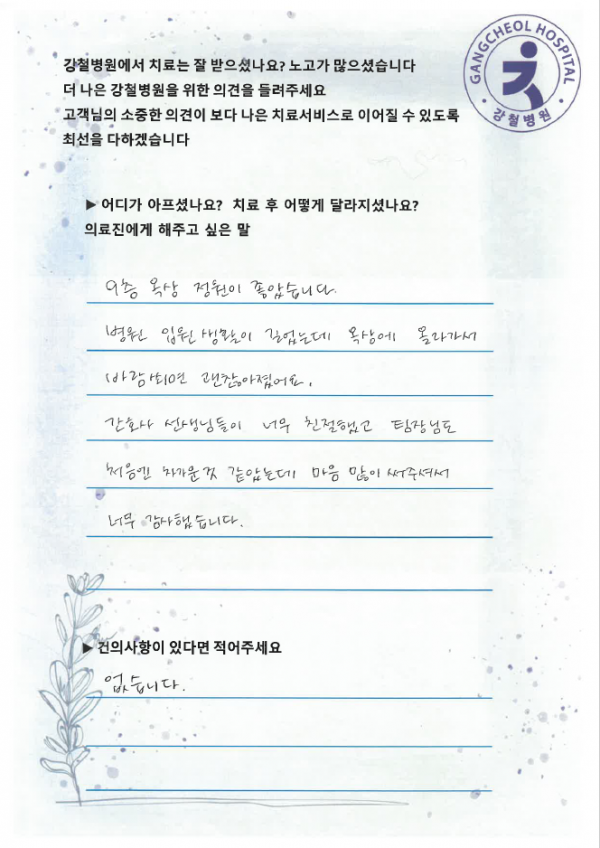 강철병원에서 치료는 잘 받으셨나요? 노고가 많으셨습니다
더 나은 강철병원을 위한 의견을 들려주세요
고객님의 소중한 의견이 보다 나은 치료서비스로 이어질 수 있도록
최선을 다하겠습니다
GANGCHEOL HOSPITAL
강철병원
▶ 어디가 아프셨나요? 치료 후 어떻게 달라지셨나요?
의료진에게 해주고 싶은 말
9층 옥상 정원이 좋았습니다.
병원 입원생활이 길었는데 옥상에 올라가서
바람쐬면 괜찮아졌어요.
간호사 선생님들이 너무 친절했고 팀장님도
처음엔 차가운것 같았는데 마음 많이 써주셔서
너무 감사했습니다.
▶ 건의사항이 있다면 적어주세요
없습니다.